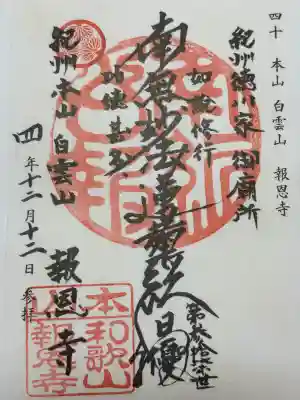 四十 本山 白雲山 報恩寺
紀州徳川家御廟所
如説修行
南無妙法蓮華経
功徳甚多
日優
紀州本山 白雲山 報恩寺
四年十二月十二日 参拝
本山
和歌山
報恩寺